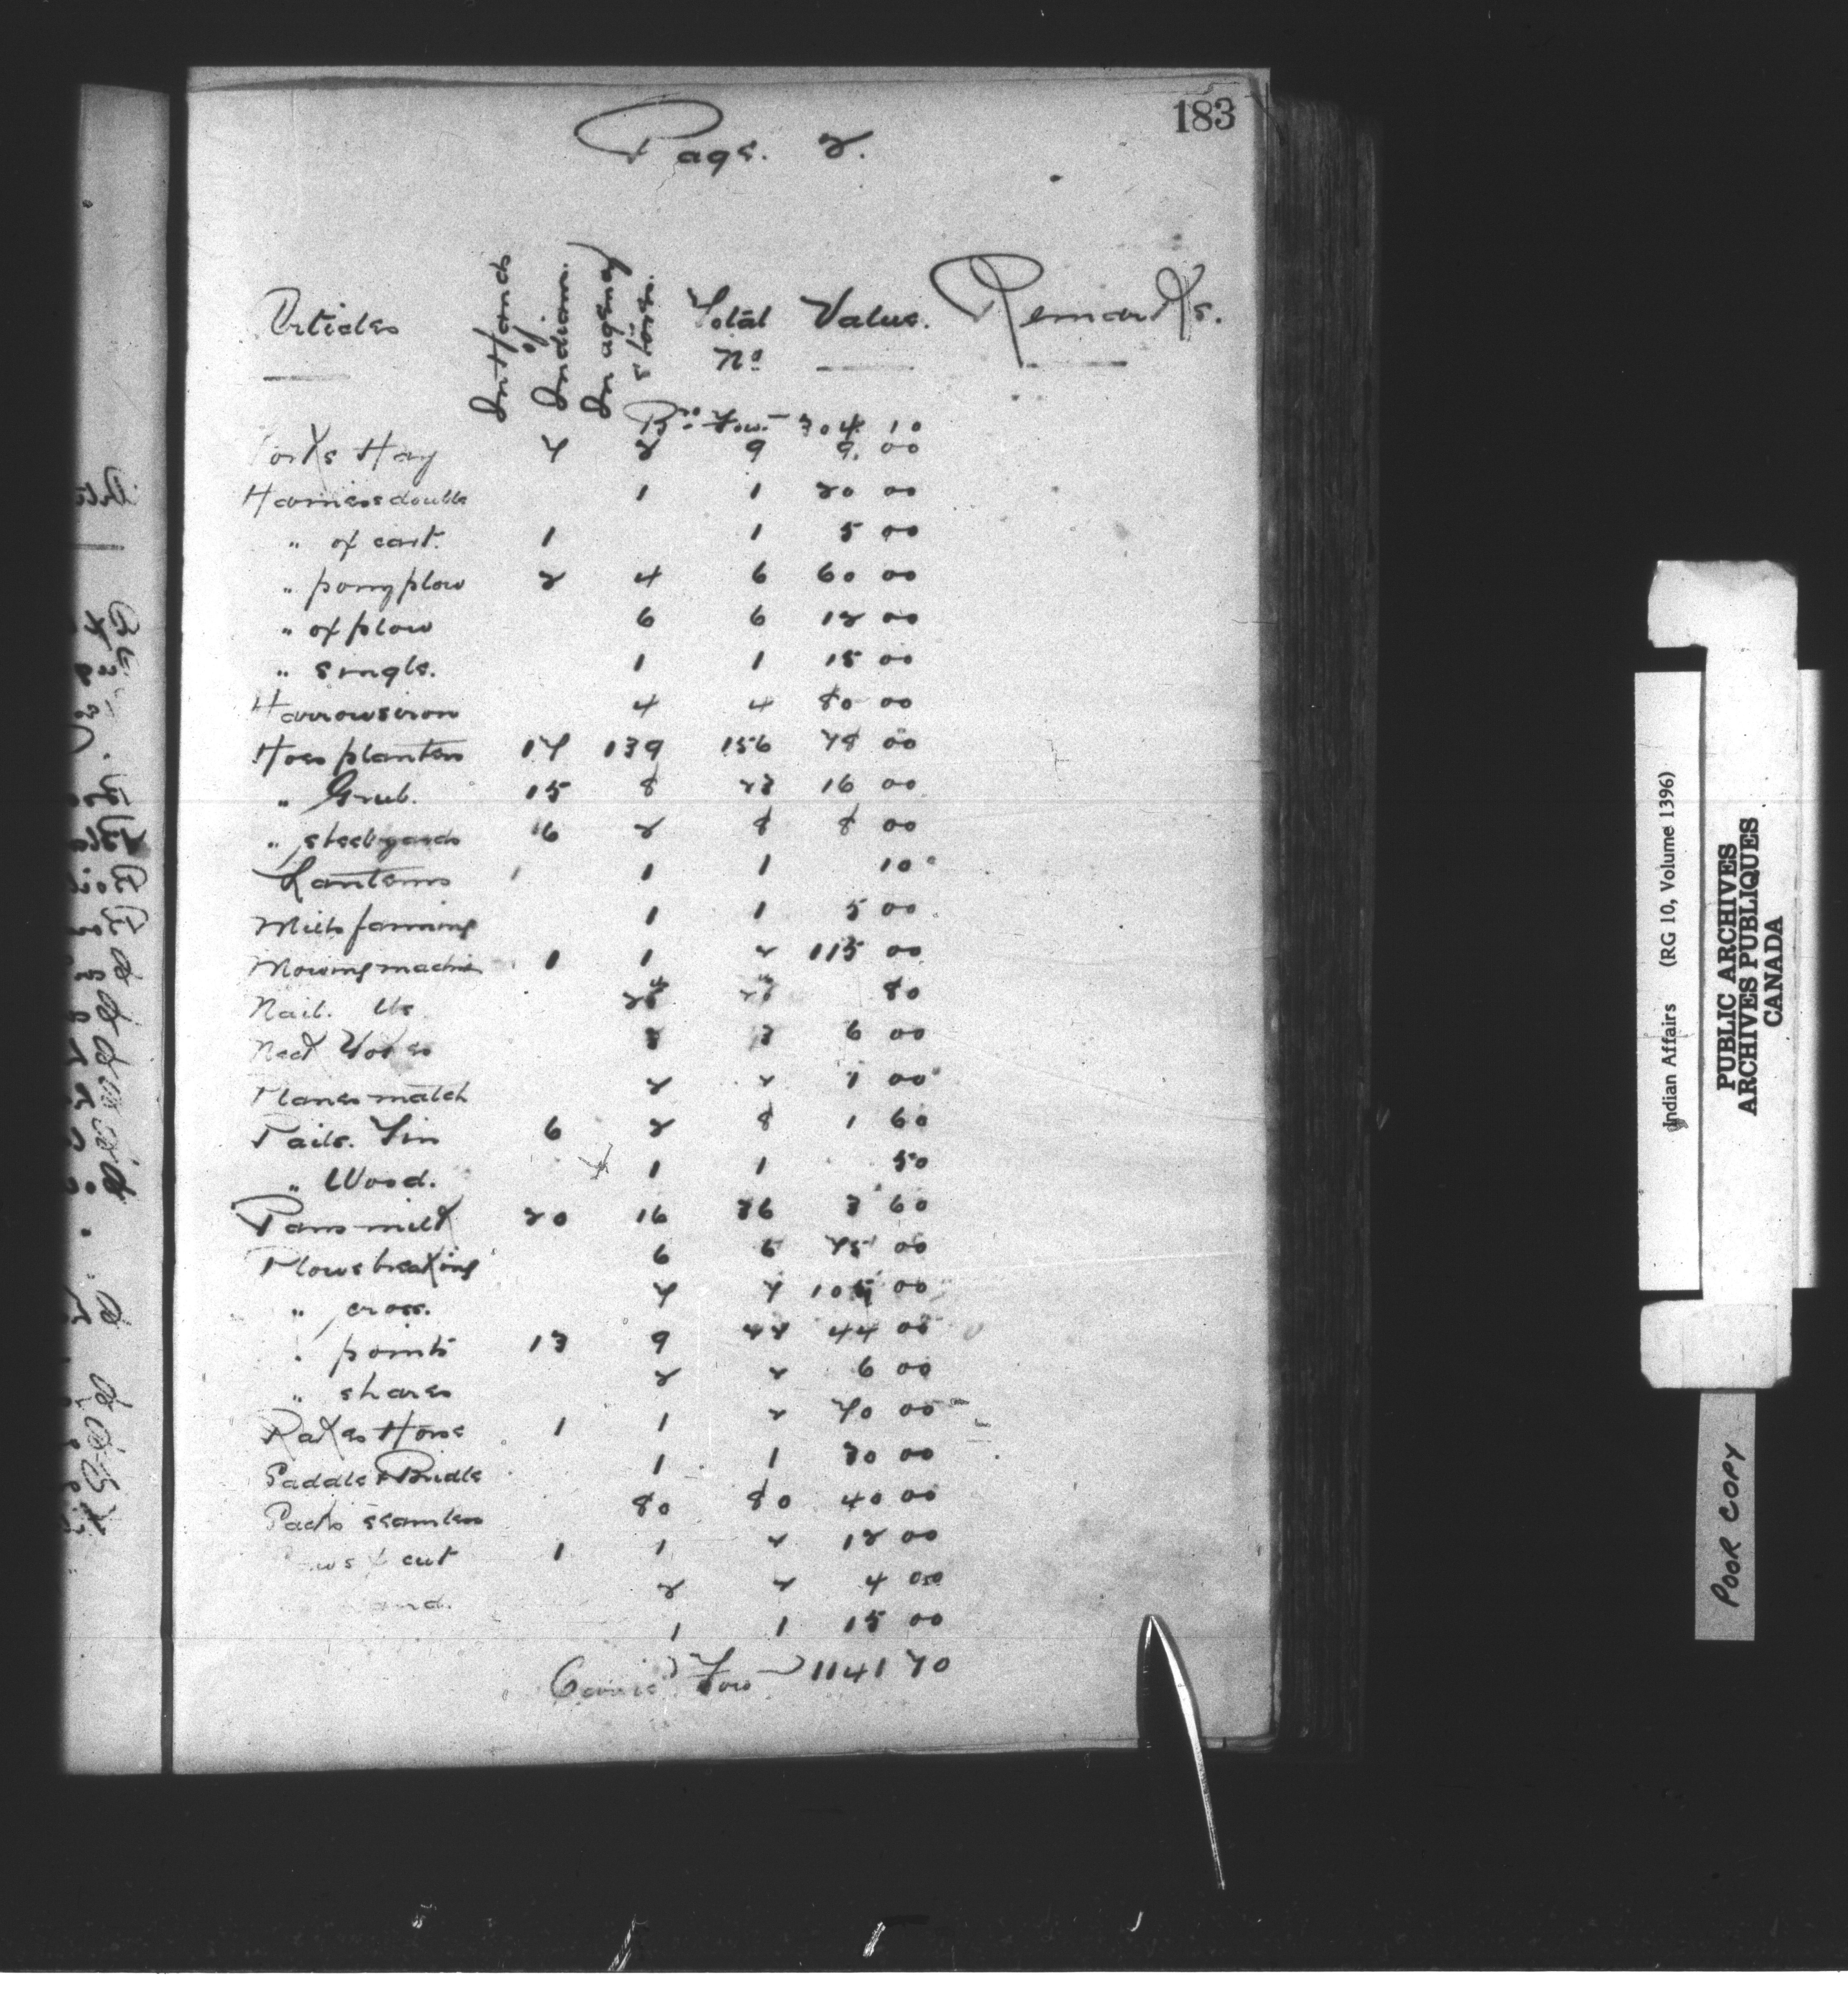 183
Page. 2.
Articles In Hands of Indians. In agency stores. Total No Value. Remarks.
Bro. Forw. 304 10
Forks Hay 7 2 9 9. 00
Harness double 1 1 20 00
" ox cart. 1 1 5 00
" pony plow 2 4 6 60 00
" ox plow 6 6 12 00
" single. 1 1 15 00
Harrows iron 4 4 80 00
Hoes planters 17 139 156 78 00
" Grub. 15 8 23 16 00
" steelyards 6 2 8 8 00
Lanterns 1 1 10
Mills fanning 1 1 5 00
Mowing machine 1 1 2 115 00
Nails lbs 80
Neck Yokes 3 3 6 00
Planes match 2 2 1 00
Pails. Tin 6 2 8 1 60
" Wood. 1 1 50
Pans milk 20 16 36 3 60
Plows breaking 6 6 75 00
" cross. 7 7 105 00
" points 13 9 22 44 00
" shares 2 2 6 00
Rakes Horse 1 1 2 70 00
Saddle & Bridle 1 1 30 00
Sacks seamless 80 80 40 00
cut 1 1 2 12 00
2 2 4 00
1 1 15 00
Carried Forw 1141 70
Indian Affairs (RG 10, Volume 1396)
PUBLIC ARCHIVES
ARCHIVES PUBLIQUES
CANADA
POOR COPY